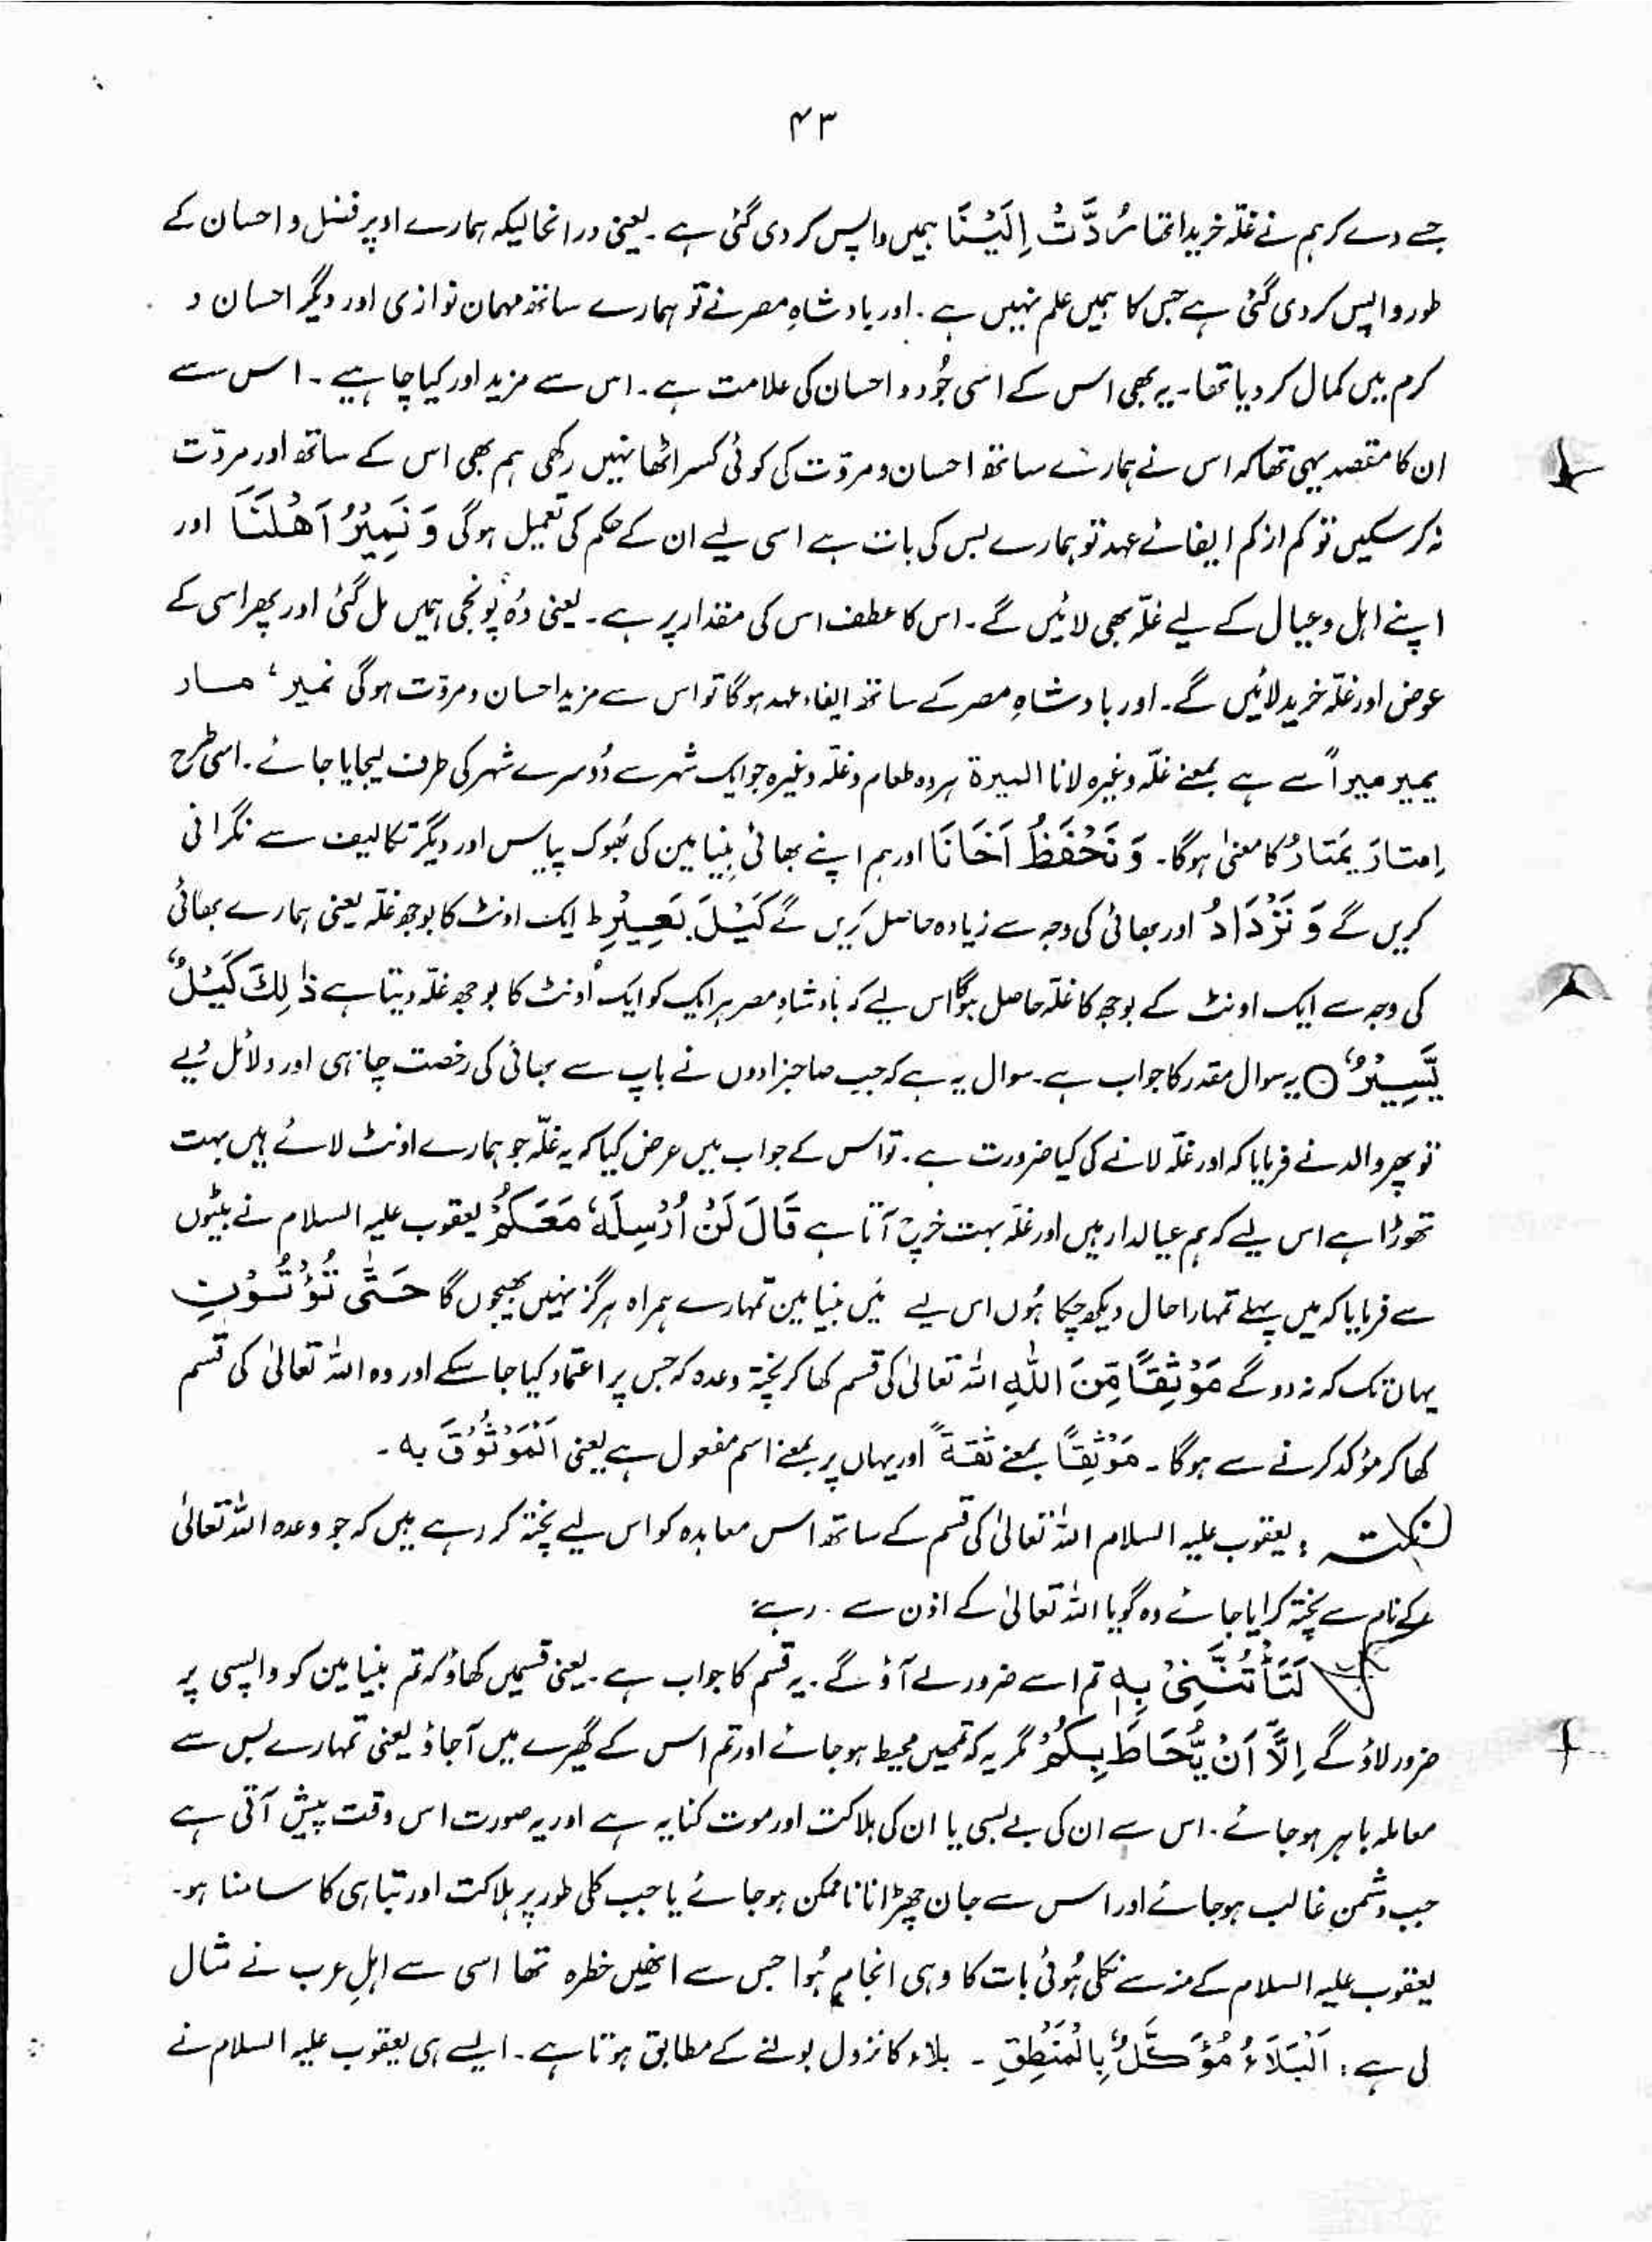 ۴۳
جسے دے کر ہم نے غلّہ خریدا تھا رُدَّتْ اِلَیْنَا ہمیں واپس کر دی گئی ہے ۔ یعنی درانحالیکہ ہمارے اوپر فضل و احسان کے
طور واپس کر دی گئی ہے جس کا ہمیں علم نہیں ہے ۔ اور بادشاہِ مصر نے تو ہمارے ساتھ مہمان نوازی اور دیگر احسان و
کرم میں کمال کر دیا تھا ۔ یہ بھی اس کے اسی جُود و احسان کی علامت ہے ۔ اس سے مزید اور کیا چاہیے ۔ اس سے
ان کا مقصد یہی تھا کہ اس نے ہمارے ساتھ احسان و مروّت کی کوئی کسر اٹھا نہیں رکھی ہم بھی اس کے ساتھ اور مروّت
نہ کر سکیں تو کم از کم ایفائے عہد تو ہمارے بس کی بات ہے اسی لیے ان کے حکم کی تعمیل ہو گی وَ نَمِیْرُ اَھْلَنَا اور
اپنے اہل و عیال کے لیے غلّہ بھی لائیں گے ۔ اس کا عطف اس کی مقدار پر ہے ۔ یعنی وُہ پُونجی ہمیں مل گئی اور پھر اسی کے
عوض اور غلّہ خرید لائیں گے ۔ اور بادشاہِ مصر کے ساتھ ایفاء عہد ہو گا تو اس سے مزید احسان و مروّت ہو گی نمیر ، مار
یمیر میراً سے ہے بمعنے غلّہ وغیرہ لانا المیرۃ ہر وہ طعام و غلّہ وغیرہ جو ایک شہر سے دُوسرے شہر کی طرف لیجایا جائے ۔ اسی طرح
اِمتارَ یَمتارُ کا معنیٰ ہو گا ۔ وَ نَحْفَظُ اَخَانَا اور ہم اپنے بھائی بِنیامین کی بُھوک پیاس اور دیگر تکالیف سے نگرانی
کریں گے وَ نَزْدَادُ اور بھائی کی وجہ سے زیادہ حاصل کریں گے کَیْلَ بَعِیْرٍ ط ایک اونٹ کا بوجھ غلّہ یعنی ہمارے بھائی
کی وجہ سے ایک اونٹ کے بوجھ کا غلّہ حاصل ہو گا اس لیے کہ بادشاہِ مصر ہر ایک کو ایک اُونٹ کا بوجھ غلّہ دیتا ہے ذٰلِکَ کَیْلٌ
یَّسِیْرٌ ○ یہ سوال مقدر کا جواب ہے ۔ سوال یہ ہے کہ جب صاحبزادوں نے باپ سے بھائی کی رخصت چاہی اور دلائل دیے
تو پھر والد نے فرمایا کہ اور غلّہ لانے کی کیا ضرورت ہے ۔ تو اس کے جواب میں عرض کیا کہ یہ غلّہ جو ہمارے اونٹ لائے ہیں بہت
تھوڑا ہے اس لیے کہ ہم عیالدار ہیں اور غلّہ بہت خرچ آتا ہے قَالَ لَنْ اُرْسِلَہٗ مَعَکُمْ یعقوب علیہ السلام نے بیٹوں
سے فرمایا کہ میں پہلے تمہارا حال دیکھ چکا ہُوں اس لیے مَیں بنیامین تمہارے ہمراہ ہرگز نہیں بھیجوں گا حَتّٰی تُؤْتُوْنِ
یہاں تک کہ نہ دو گے مَوْثِقًا مِّنَ اللّٰہِ اللہ تعالیٰ کی قسم کھا کر پختہ وعدہ کہ جس پر اعتماد کیا جا سکے اور وہ اللہ تعالیٰ کی قسم
کھا کر مؤکد کرنے سے ہو گا ۔ مَوْثِقًا بمعنے ثقۃً اور یہاں پر بمعنے اسم مفعول ہے یعنی اَلْمَوْثُوْقَ بہ ۔
نکتہ : یعقوب علیہ السلام اللہ تعالیٰ کی قسم کے ساتھ اس معاہدہ کو اس لیے پختہ کر رہے ہیں کہ جو وعدہ اللہ تعالیٰ
کے نام سے پختہ کرایا جائے وہ گویا اللہ تعالیٰ کے اذن سے ہے ۔
لَتَاْتُنَّنِیْ بِہٖ تم اسے ضرور لے آؤ گے ۔ یہ قسم کا جواب ہے ۔ یعنی قسمیں کھاؤ کہ تم بنیامین کو واپسی پر
ضرور لاؤ گے اِلَّآ اَنْ یُّحَاطَ بِکُمْ مگر یہ کہ تمھیں محیط ہو جائے اور تم اس کے گھیرے میں آ جاؤ یعنی تمہارے بس سے
معاملہ باہر ہو جائے ۔ اس سے ان کی بے بسی یا ان کی ہلاکت اور موت کنایہ ہے اور یہ صورت اس وقت پیش آتی ہے
جب دشمن غالب ہو جائے اور اس سے جان چھڑانا ناممکن ہو جائے یا جب کلی طور پر ہلاکت اور تباہی کا سامنا ہو ۔
یعقوب علیہ السلام کے منہ سے نکلی ہُوئی بات کا وہی انجام ہُوا جس سے انھیں خطرہ تھا اسی سے اہلِ عرب نے مثال
لی ہے : اَلْبَلَاءُ مُؤَکَّلٌ بِالْمَنْطِقِ ۔ بلاء کا نزول بولنے کے مطابق ہوتا ہے ۔ ایسے ہی یعقوب علیہ السلام نے